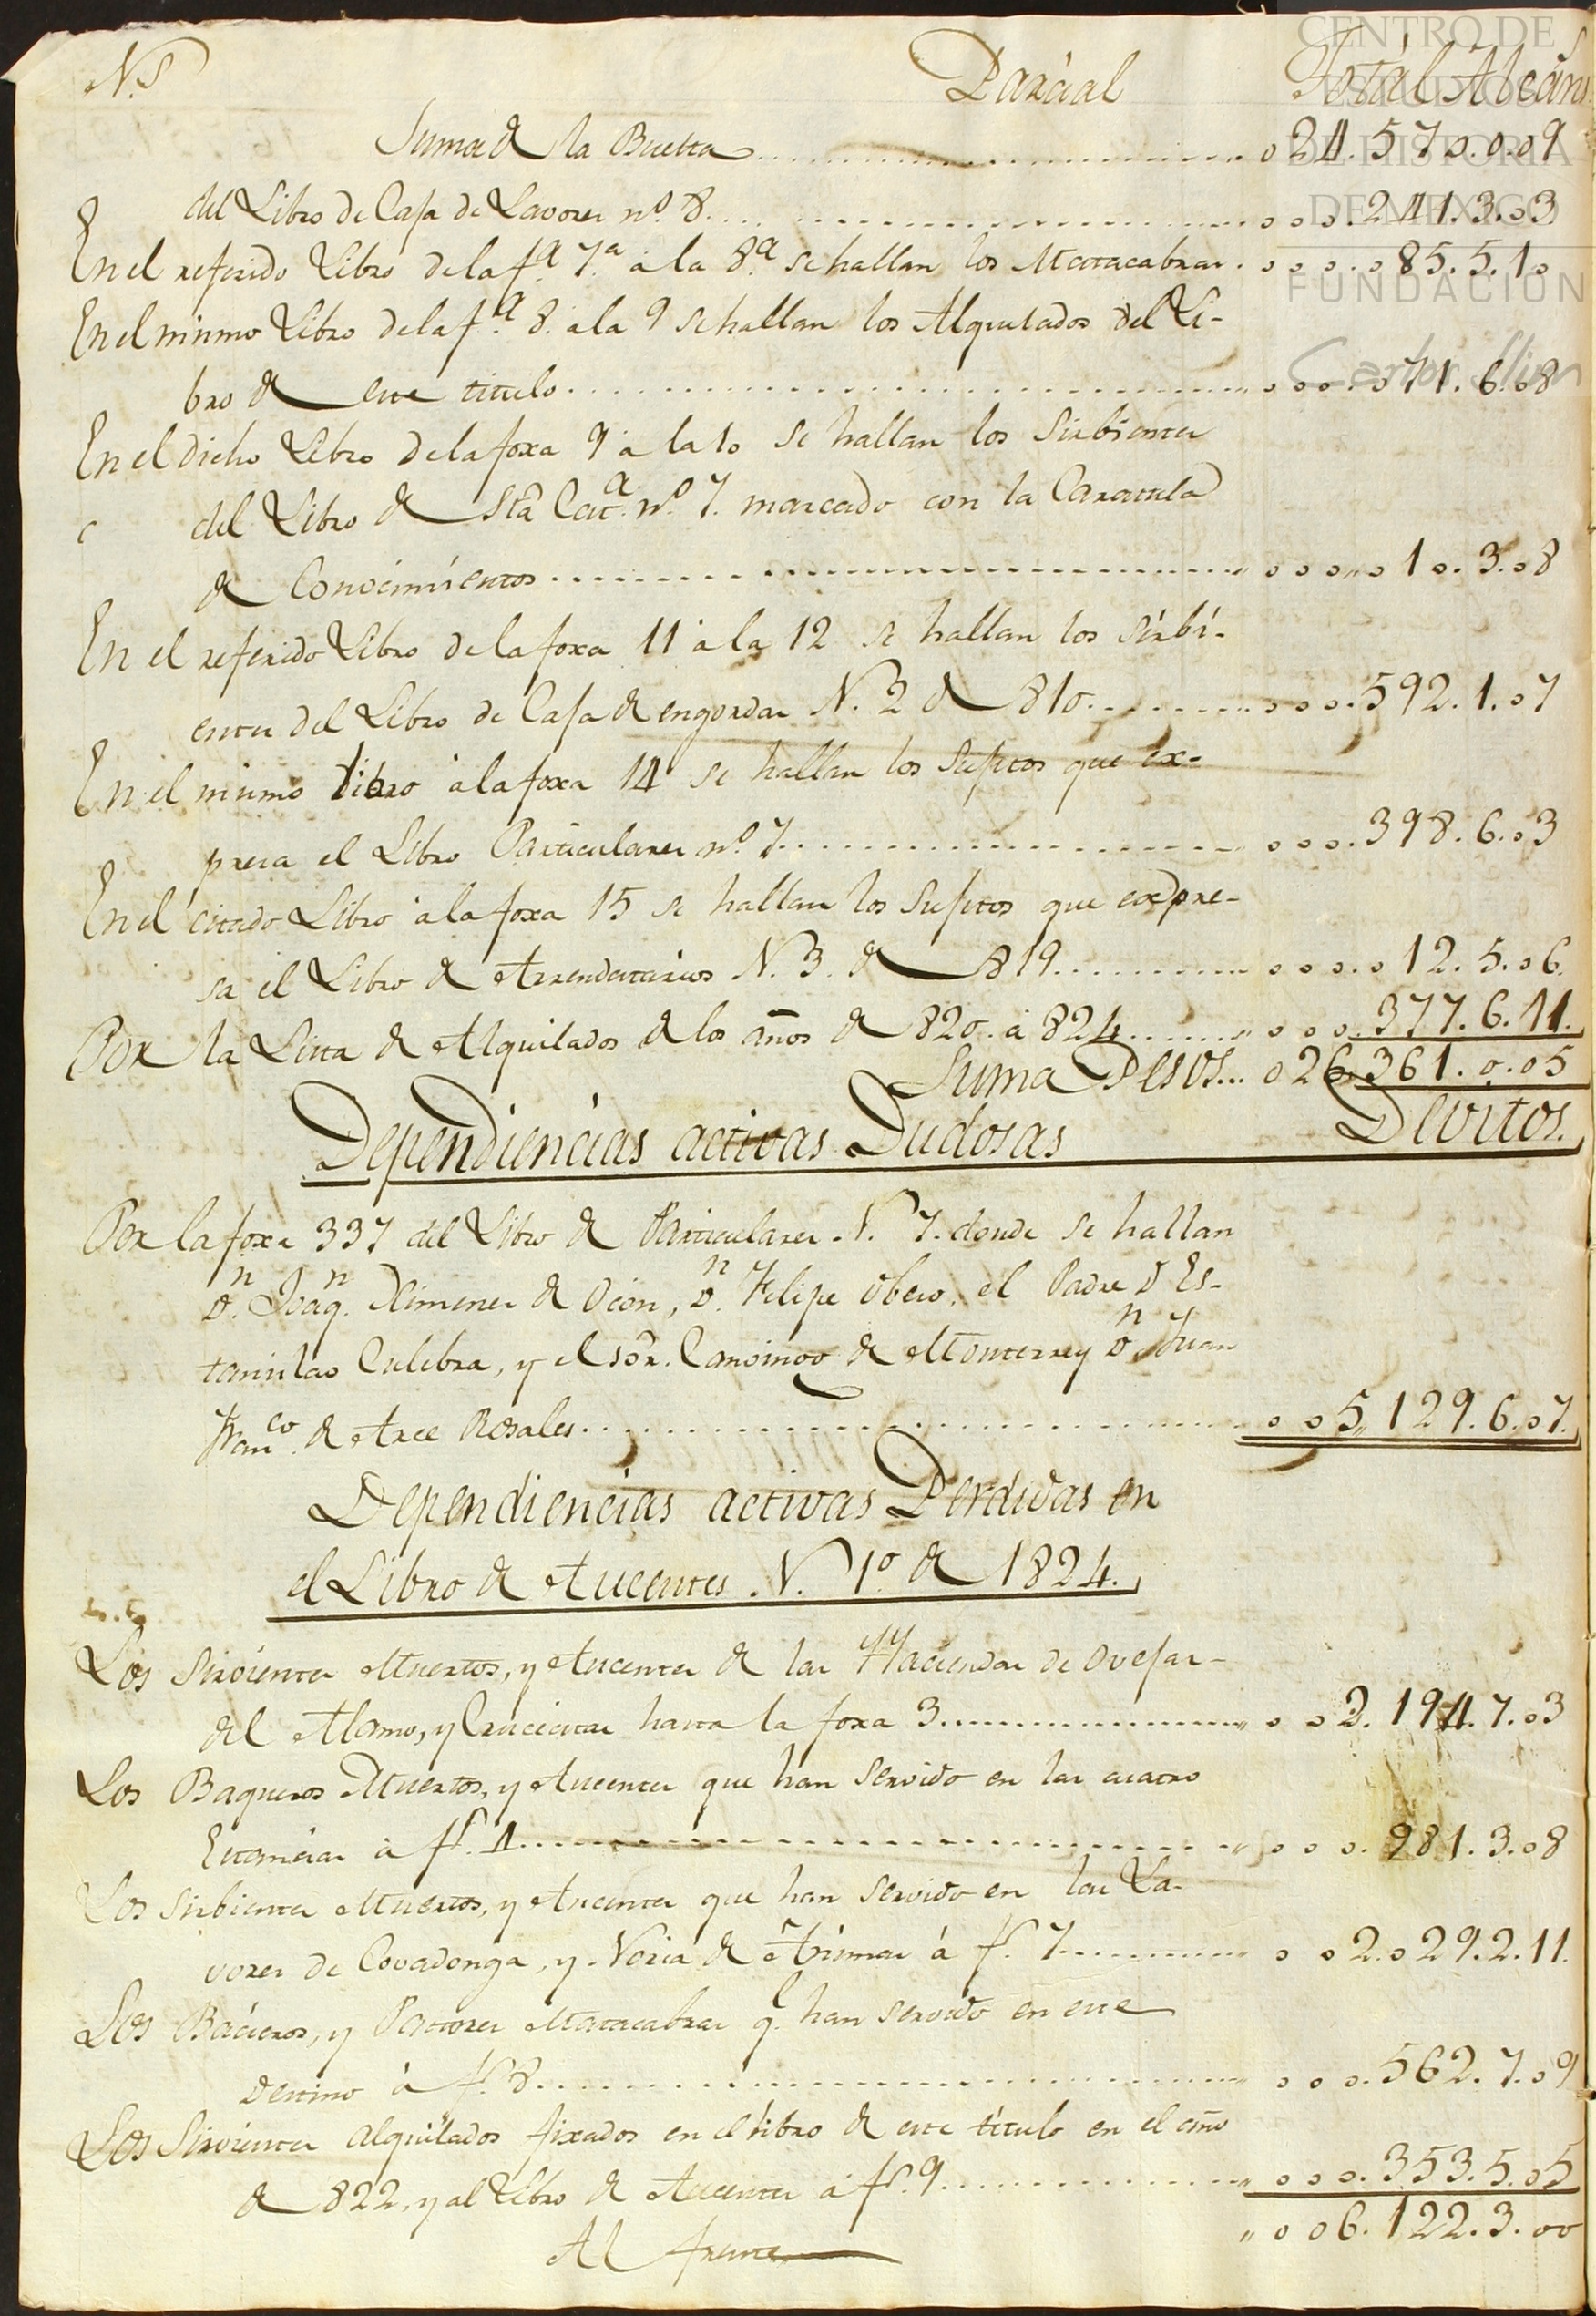 N.S Parcial Totál Alcáns
CENTRO DE
ESTUDIOS
DE HISTORIA
DE MEXICO
FUNDACION
Carlos Slim
Suma de la Buelta ........ o24.570.0.09
8 del Libro de Casa de Lavores nº 8 ........ ooo.241.3.03
En el referido Libro de la fª 7ª á la 8ª se hallan los Matacabras. oooo.o85.5.10
En el mismo Libro de la fª 8. a la 9 se hallan los Alquilados del Li-
bro de este titulo ........ ooo.o71.6.08
En el dicho Libro de la foxa 9 á la 10 se hallan los Sirbientes
c del Libro de Sta Catª nº 7. marcado con la Caratula
de Conocimientos ........ ooo,,o10.3.08
En el referido Libro de la foxa 11 á la 12 se hallan los Sirbi-
entes del Libro de Casa de engordas N. 2 de 810 ........ ooo.592.1.07
En el mismo Libro á la foxa 14 se hallan los Sujetos que ex-
presa el Libro Particulares nº 7 ........ ooo.398.6.03
En el citado Libro á la foxa 15 se hallan los Sujetos que expre-
sa el Libro de Arrendatarios N. 3. de 819 ........ ooo.o12.5.06.
Por la Lista de Alquilados de los años de 820. á 824 ........ ooo.377.6.11.
Suma Pesos... o26,,361.0.05
Dependiencias activas Dudosas Devitos.
Por la foxa 337 del Libro de Particulares N. 7. donde se hallan
Dn. Joaqn. Ximenes de Ocon, Dn. Felipe Obeso, el Padre D Es-
tanislao Culebra, y el sõr. Canonigo de Monterrey Dn Juan
Franco. de Arce Rosales ........ oo5,,129.6.07.
Dependiencias activas Perdidas en
el Libro de Aucentes N. 1º de 1824.
Los Sirvientes Muertos, y Aucentes de las Haciendas de Ovejas-
del Alamo, y Crucecitas hasta la foxa 3 ........ oo2.194.7.03
Los Baqueros Muertos, y Aucentes que han Servido en las cuatro
Estancias á fs. 4 ........ ooo.981.3.08
Los Sirbientes Muertos, y Aucentes que han Servido en las La-
vores de Covadonga, y Noria de Animas á fs. 7 ........ oo2.o29.2.11.
Los Bacieros, y Pastores Matacabras q. han Servido en este
Destino á fs. 8 ........ ooo.562.7.09
Los Sirvientes alquilados fixados en el libro de este titulo en el año
de 822, y al Libro de Aucentes á fs. 9 ........ ooo.353.5.05
Al frente ,,oo6.122.3.00